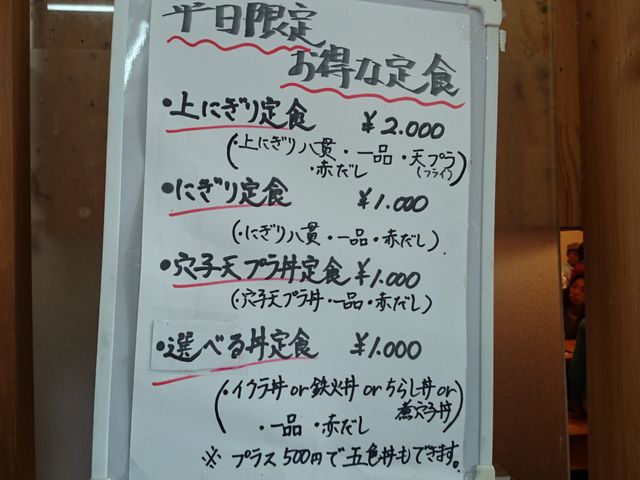 平日限定
お得な定食
・上にぎり定食 ¥2.000
(・上にぎり八貫・一品・天プラ(フライ)
・赤だし)
・にぎり定食 ¥1.000
(・にぎり八貫・一品・赤だし)
・穴子天プラ丼定食 ¥1.000
(・穴子天プラ丼・一品・赤だし)
・選べる丼定食 ¥1.000
(・イクラ丼or鉄火丼orちらし丼or
煮穴子丼
・一品・赤だし)
※プラス500円で五色丼もできます。